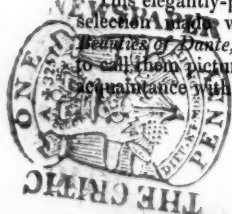 This elegantly-p
selection made w
Beauties of Dante,
to call them pictur
acquaintance with
NEWSPAPER
ONE
PENNY
THE CRITIC